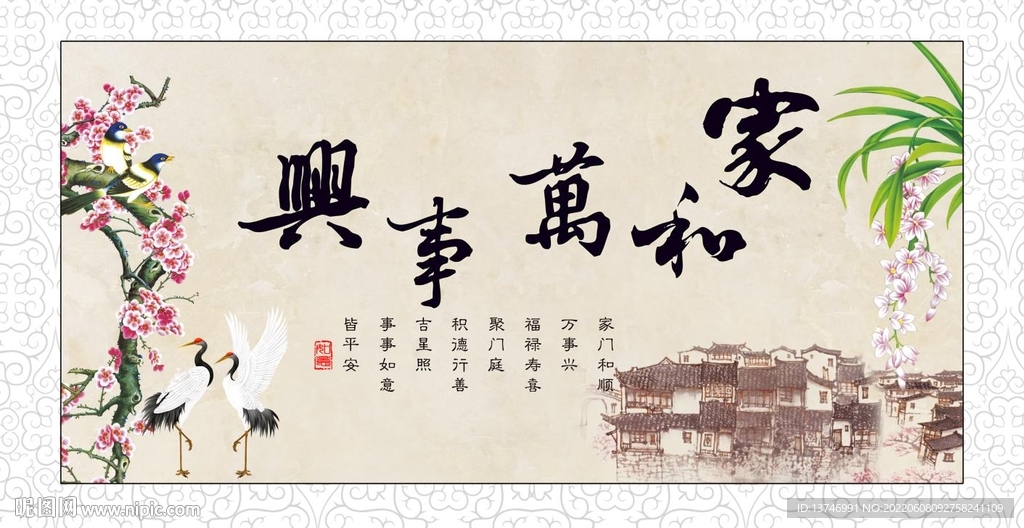 家和萬事興
家门和顺
万事兴
福禄寿喜
聚门庭
积德行善
吉星照
事事如意
皆平安
昵图网 www.nipic.com
ID:13746991 NO:20220608092758241109